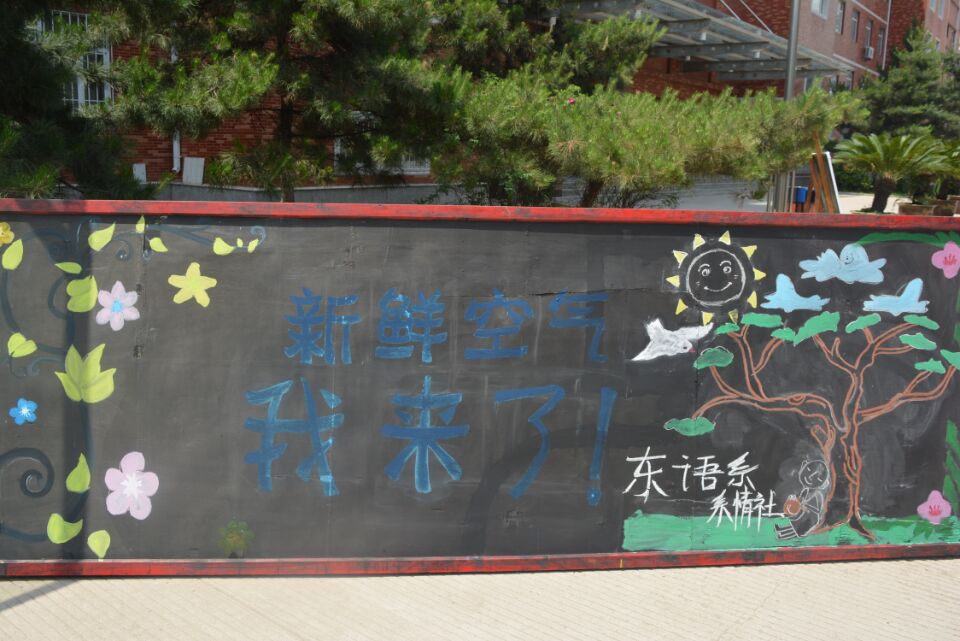 新鲜空气
我来了!
东语系
系情社